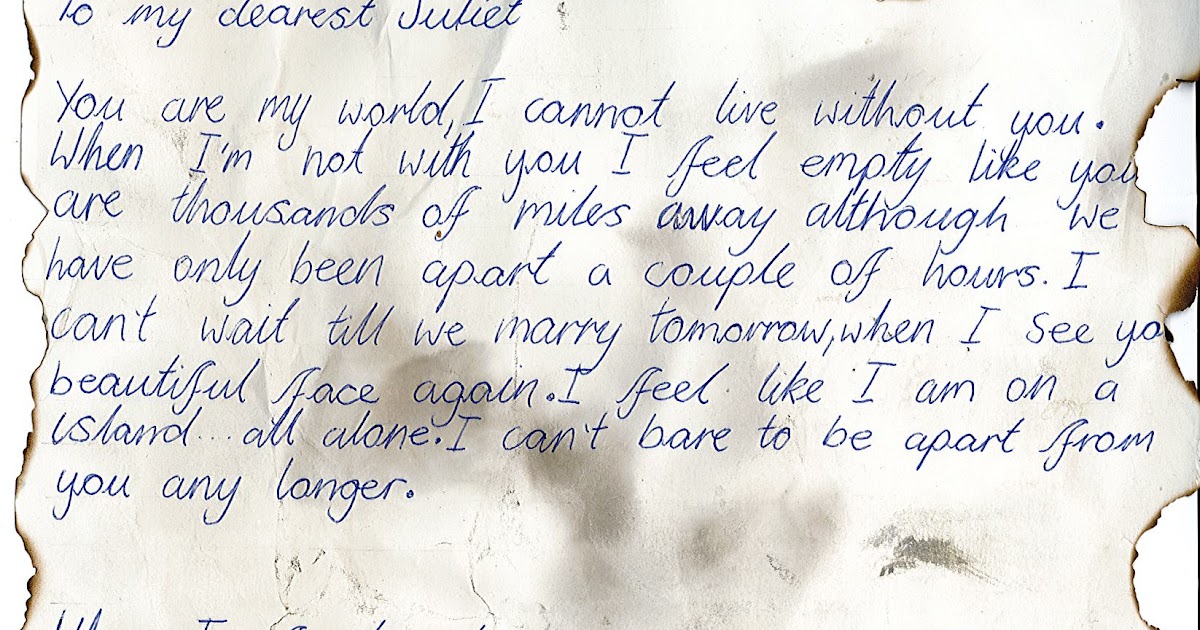 To my dearest Juliet
You are my world, I cannot live without you.
When I'm not with you I feel empty like you
are thousands of miles away although we
have only been apart a couple of hours. I
can't wait till we marry tomorrow, when I see yo
beautiful face again. I feel like I am on a
island... all alone. I can't bare to be apart from
you any longer.